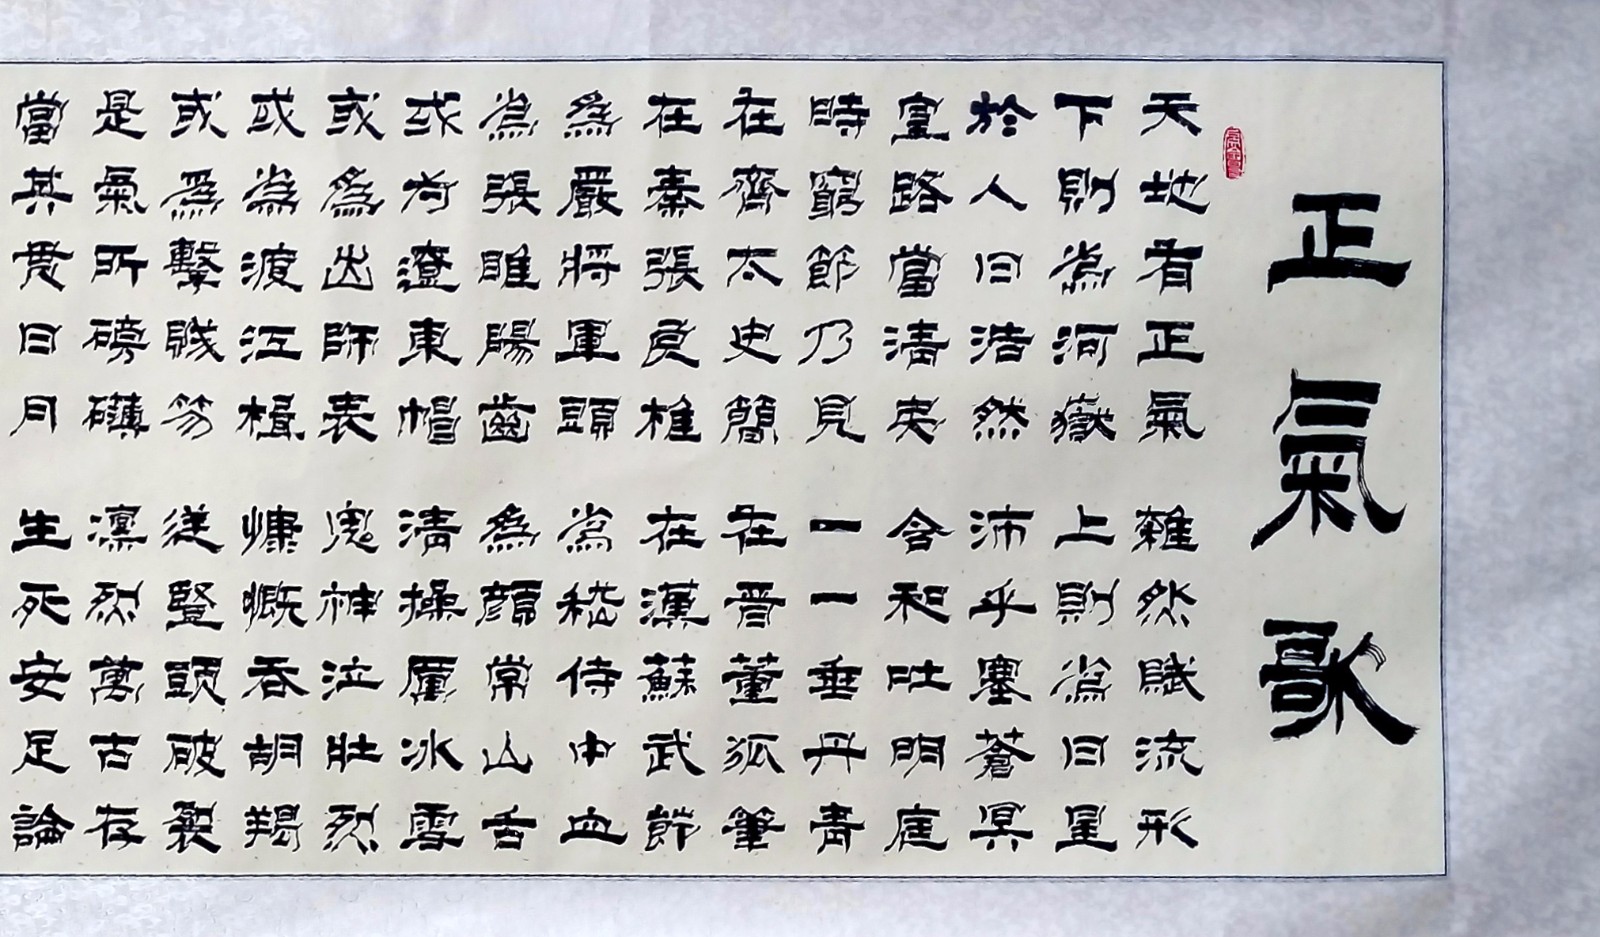 正氣歌
天地有正氣 雜然賦流形
下則為河嶽 上則為日星
於人曰浩然 沛乎塞蒼冥
皇路當清夷 含和吐明庭
時窮節乃見 一一垂丹青
在齊太史簡 在晉董狐筆
在秦張良椎 在漢蘇武節
為嚴將軍頭 為嵇侍中血
為張睢陽齒 為顏常山舌
或為遼東帽 清操厲冰雪
或為出師表 鬼神泣壯烈
或為渡江楫 慷慨吞胡羯
或為擊賊笏 逆豎頭破裂
是氣所磅礴 凜烈萬古存
當其貫日月 生死安足論